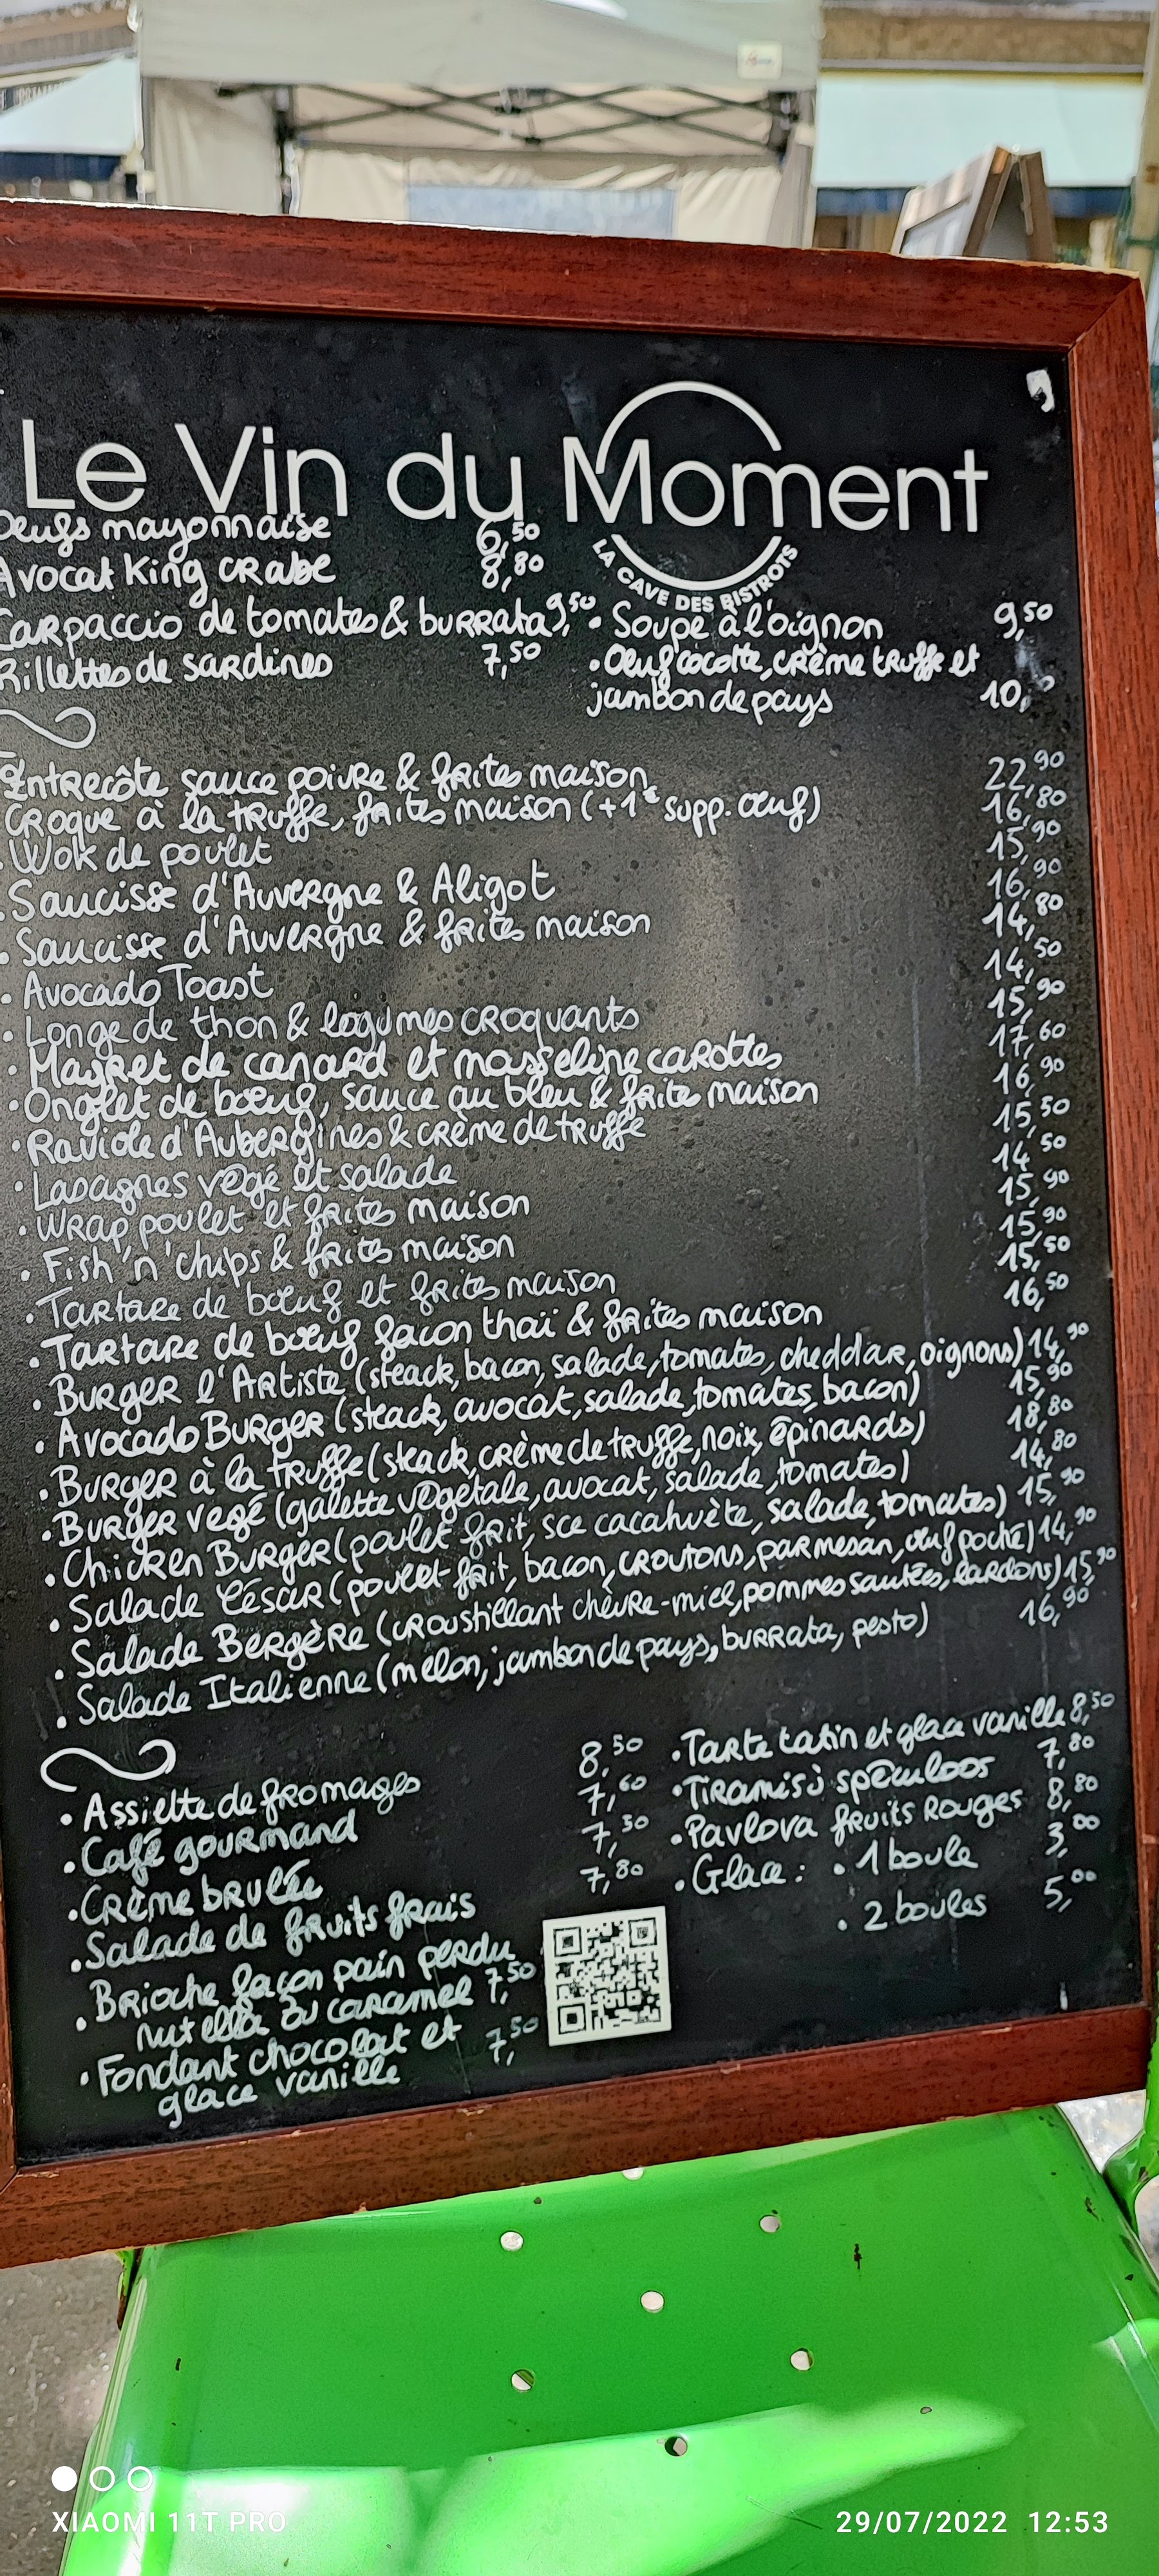 Le Vin du Moment
LA CAVE DES BISTROTS
Oeufs mayonnaise 6,50
Avocat King crabe 8,80
Carpaccio de tomates & burrata 9,50
Rillettes de sardines 7,50
• Soupe à l'oignon 9,50
• Oeuf cocotte, crème truffe et
jambon de pays 10,
Entrecôte sauce poivre & frites maison 22,90
Croque à la truffe, frites maison (+1€ supp. œuf) 16,80
Wok de poulet 15,90
• Saucisse d'Auvergne & Aligot 16,90
• Saucisse d'Auvergne & frites maison 14,80
• Avocado Toast 14,50
• Longe de thon & légumes croquants 15,90
• Magret de canard et mousseline carottes 17,60
• Onglet de bœuf, sauce au bleu & frites maison 16,90
• Raviole d'Aubergines & crème de truffe 15,50
• Lasagnes végé et salade 14,50
• Wrap poulet et frites maison 15,90
• Fish 'n' chips & frites maison 15,90
• Tartare de bœuf et frites maison 15,50
• Tartare de bœuf façon thaï & frites maison 16,50
• Burger l'Artiste (steack, bacon, salade, tomates, cheddar, oignons) 14,90
• Avocado Burger (steack, avocat, salade, tomates, bacon) 15,90
• Burger à la truffe (steack, crème de truffe, noix, épinards) 18,80
• Burger végé (galette végétale, avocat, salade, tomates) 14,80
• Chicken Burger (poulet frit, sce cacahuète, salade, tomates) 15,90
• Salade César (poulet frit, bacon, croutons, parmesan, œuf poché) 14,90
• Salade Bergère (croustillant chèvre-miel, pommes sautées, lardons) 15,90
• Salade Italienne (melon, jambon de pays, burrata, pesto) 16,90
• Assiette de fromages 8,50
• Café gourmand 7,60
• Crème brulée 7,50
• Salade de fruits frais 7,80
• Brioche façon pain perdu
nutella ou caramel 7,50
• Fondant chocolat et 7,50
glace vanille
• Tarte tatin et glace vanille 8,50
• Tiramisù spéculoos 7,80
• Pavlova fruits rouges 8,80
• Glace : • 1 boule 3,00
• 2 boules 5,00
XIAOMI 11T PRO
29/07/2022 12:53